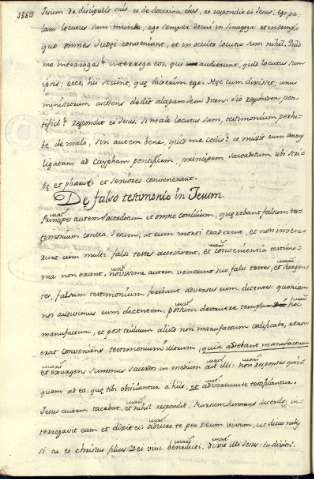 1560
Jesum de discipulis suis et de doctrina eius, et respondit ei Jesus. Ego pa-
lam locutus sum mundo, ego semper docui in sinagoga et in templo
quo omnes Judei conveniunt, et in oculto locutus sum nihil. Quid
me interogas? interoga eos qui audierunt, quid locutus sum
ipsis, ecce hi sciunt, que dixerim ego. Hec cum dixisset, unus
ministrorum asistens dedit alapam Jesu dicens sic respondes pon-
tifici? respondit ei Jesus. Si male locutus sum, testimonium perhi-
be de malo, si autem bene, quid me cedis? et misit eum Annas
ligatum ad Caypham pontificem, principem sacerdotum ubi scri-
be et pharisei et seniores convenerant.
De falso testimonio in Jesum.
Principes autem sacerdotum et omne concilium, querebant falsum tes-
timonium contra Jesum, ut eum morti traderent, et non invene-
runt cum multi falsi testes accesissent, et convenientia testimo-
nia non erant, novissime autem venerunt duo falsi testes, et surgen-
tes, falsum testimonium ferebant adversus eum dicentes quoniam
nos audivimus eum dicentem, possum destruere templum hoc
manufactum, et post triduum aliud non manufactum edificare, et non
erat conveniens testimonium illorum,
et exurgens summus sacerdos in medium ait illi. non respondes quid-
quam ad ea que tibi obiiciuntur a hiis, et
Jesus autem tacebat, et nihil respondit. Rursum summus sacerdos in-
terogavit eum et dixit ei adiuro te per Deum vivum, ut dicas nobis
si tu es Christus filius Dei vivi benedicti, dixit illi Jesus: tu dixisti.